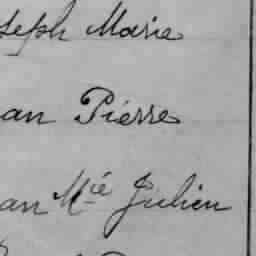 seph Marie
an Pierre
an Mié Julien